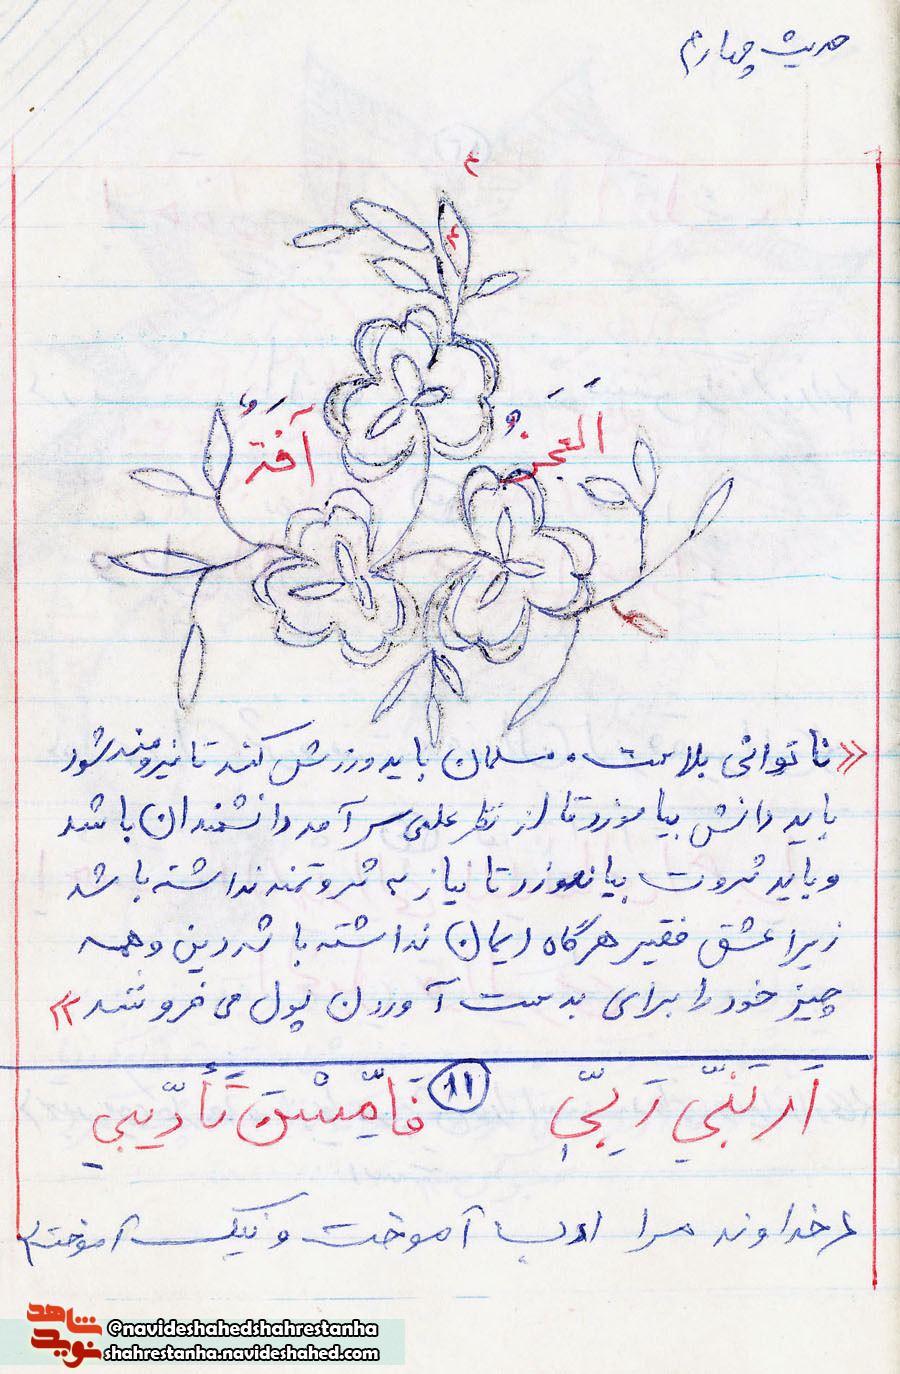 حدیث چهارم
۴
۴
العَجَزُ آفَةٌ
«ناتوانی بلاست. مسلمان باید ورزش کند تا نیرومند شود
باید دانش بیاموزد تا از نظر علمی سرآمد دانشمندان باشد
و باید ثروت بیاندوزد تا نیاز به ثروتمند نداشته باشد
زیرا عشق فقیر هرگاه ایمان نداشته باشد دین و همه
چیز خود را برای بدست آوردن پول می فروشد»
۱۱
اَدَّبَنّی رَبّی
تَأدّیبی
خداوند مرا ادب آموخت و نیک آموخت
شاهد
نوید
@navideshahedshahrestanha
shahrestanha.navideshahed.com